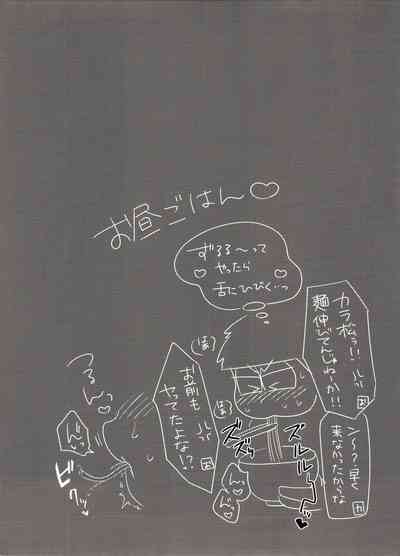 お昼ごはん♡
ずるる〜って
やったら
舌にひびく…っ
カラ松ぅ!!
麺伸びてんじゃねーか!!
ン〜?早く
来なかったからな
お前も
ヤってたよな!?
ズルルー
ズズッ
つるんっ
ん♡
ん♡
ビクッ